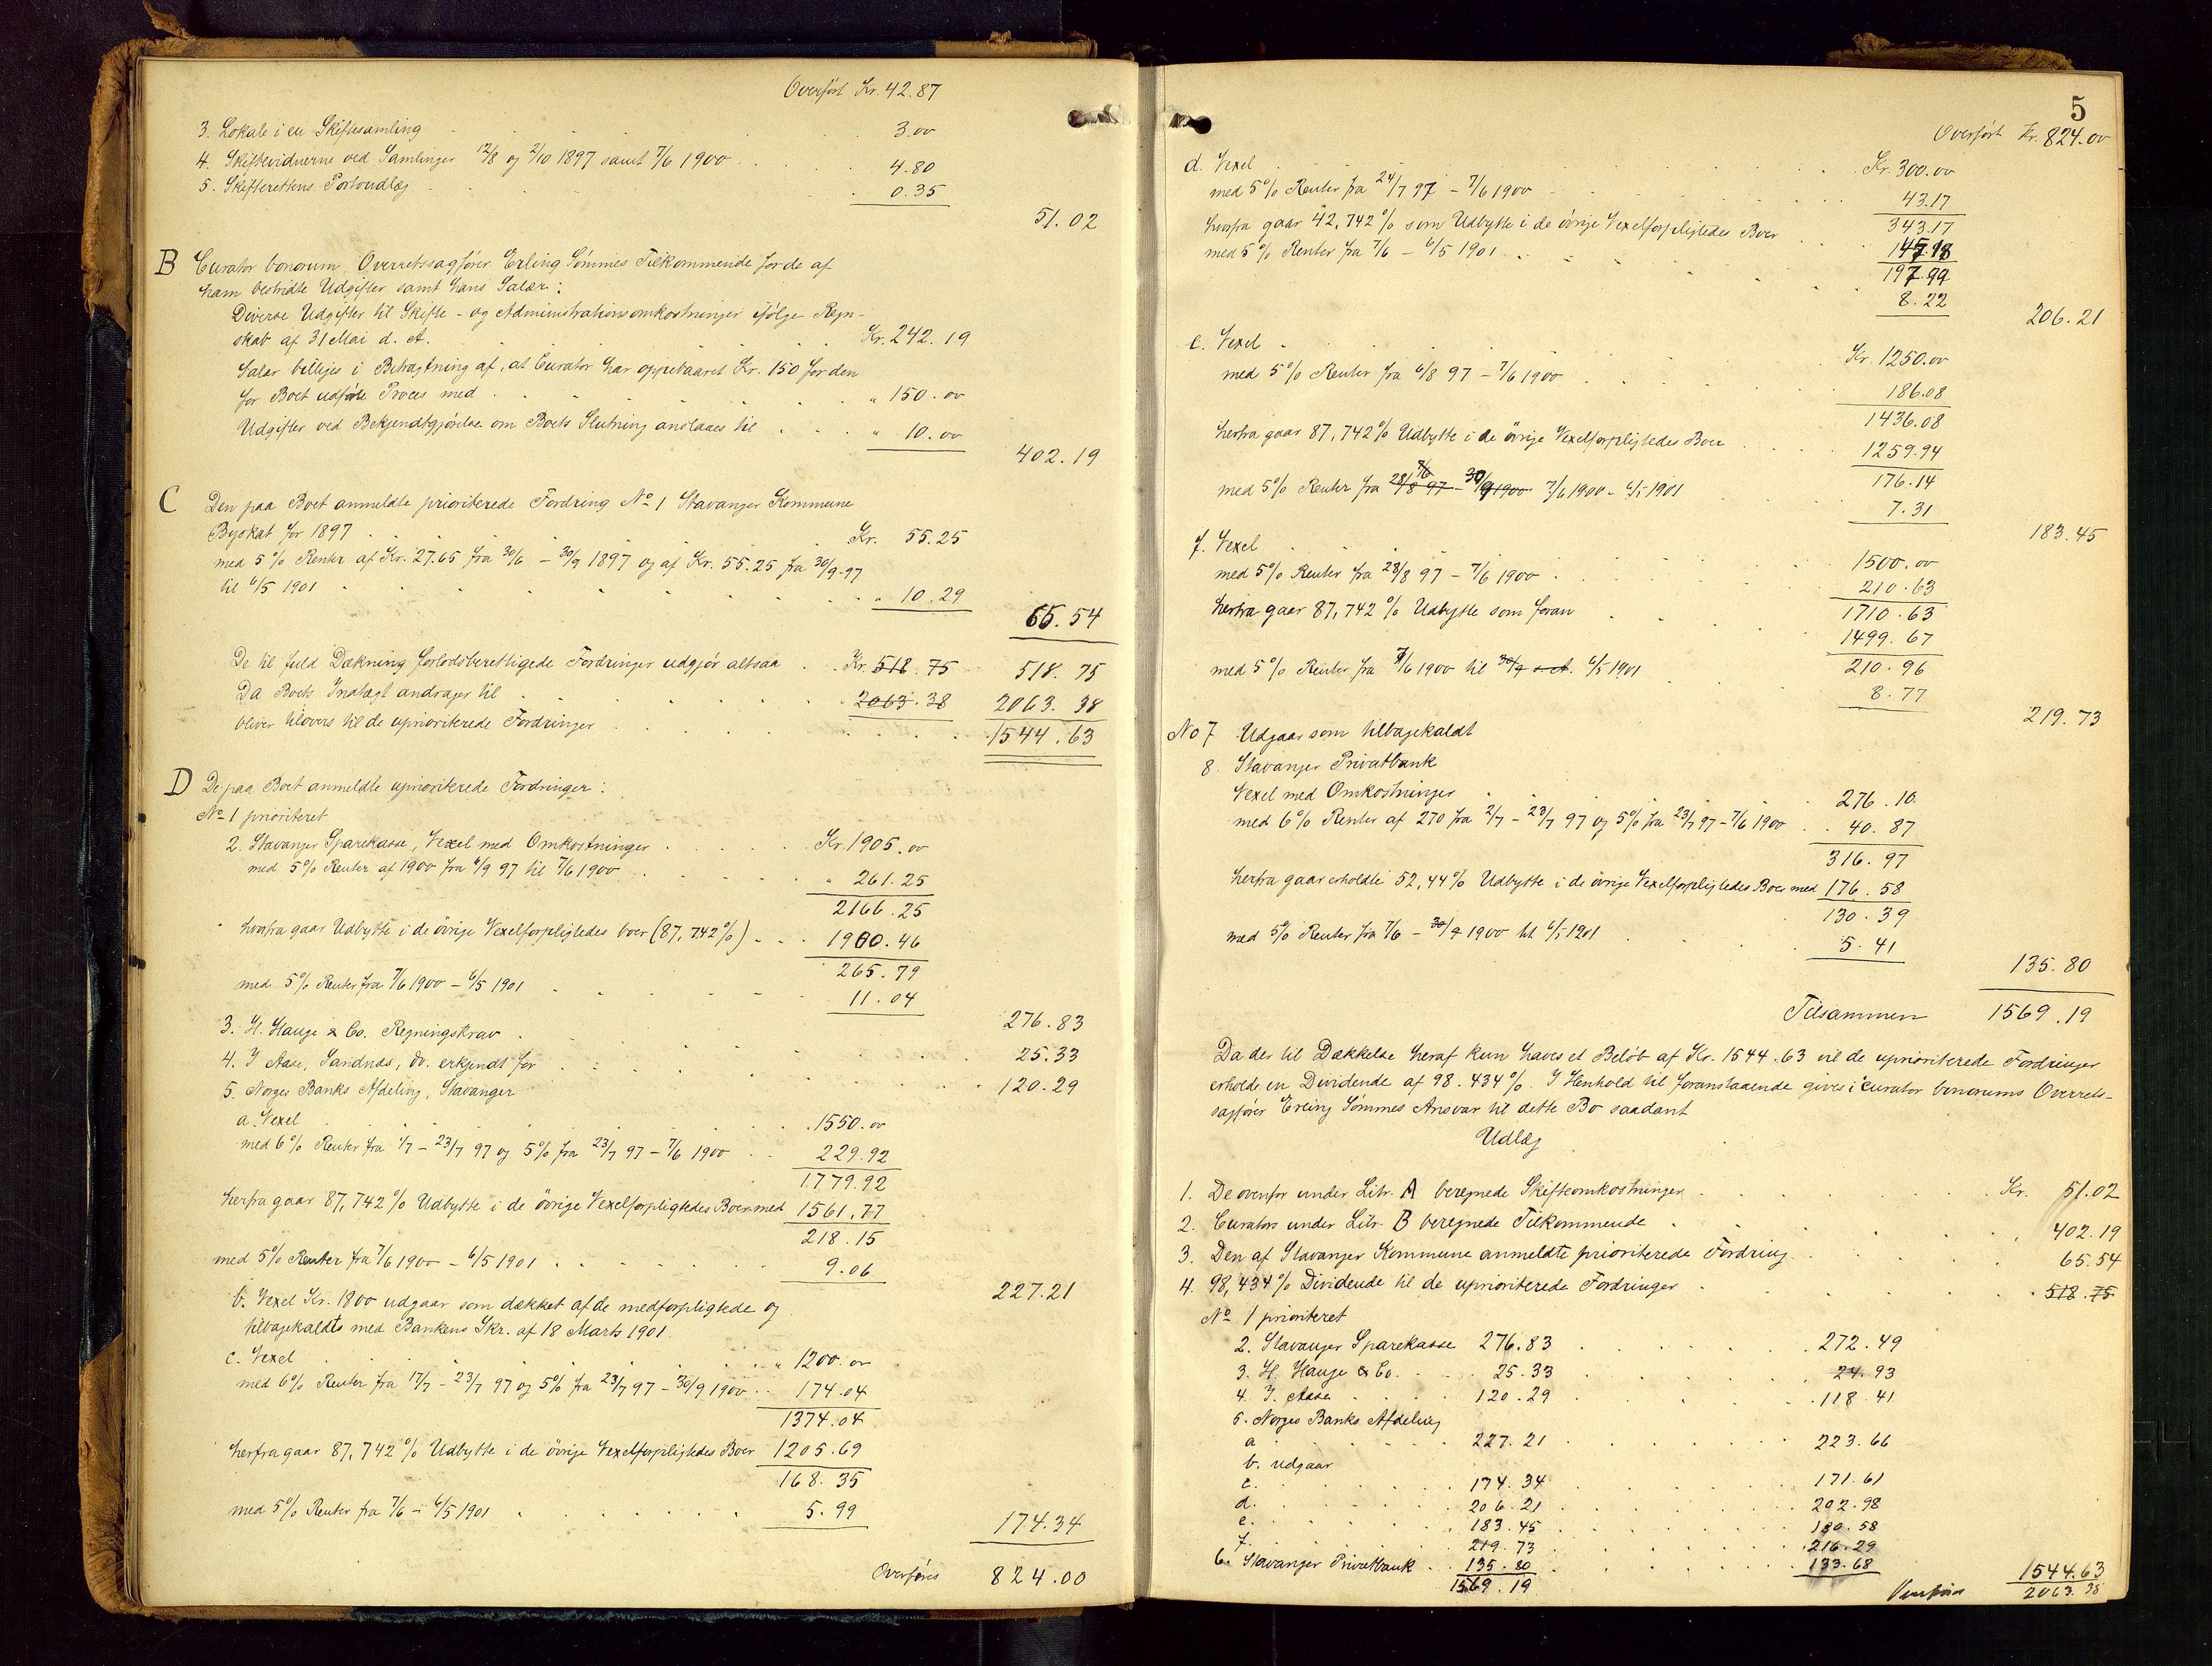 Overført Kr. 42.87
3. Lokale i en Skiftesamling . . . 3.00
4. Skiftevidnerne ved Samlinger 12/8 og 2/10 1897 samt 7/6 1900 . . 4.80
5. Skifterettens Portoudlæg . . . 0.35
51.02
B Curator bonorum, Overretssagfører Erling Sømmes Tilkommende for de af
ham bestridte Udgifter samt hans Salær:
Diverse Udgifter til Skifte- og Administrationsomkostninger ifølge Regn-
skab af 31 Mai d. A. . . . Kr. 242.19
Salær billiges i Betragtning af, at Curator har oppebaaret Kr. 150 for den
for Boet udførte Proces med . . . " 150.00
Udgifter ved Bekjendtgjørelse om Boets Slutning anslaaes til . . . " 10.00
402.19
C Den paa Boet anmeldte prioriterede Fordring No 1 Stavanger Kommune
Byskat for 1897 . . . Kr. 55.25
med 5% Renter af Kr. 27.65 fra 30/6 - 30/9 1897 og af Kr. 55.25 fra 30/9-97
til 6/5 1901 . . . " 10.29
65.54
De til fuld Dækning forlodsberettigede Fordringer udgjør altsaa . . Kr. 518.75 518.75
Da Boets Indtægt andrager til . . . 2063.38 2063.38
bliver tilovers til de uprioriterede Fordringer . . . 1544.63
D De paa Boet anmeldte uprioriterede Fordringer:
No 1 prioriteret
2. Stavanger Sparekasse, Vexel med Omkostninger . . . Kr. 1905.00
med 5% Renter af 1900 fra 6/9 97 til 7/6 1900 . . . " 261.25
2166.25
hvorfra gaar Udbytte i de øvrige Vexelforpligtedes boer (87,742%) . . . 1900.46
265.79
med 5% Renter fra 7/6 1900 - 6/5 1901 . . . 11.04
276.83
3. H. Hauge & Co. Regningskrav . . . 25.33
4. I Aase, Sandnæs, do. erkjendt for . . . 120.29
5. Norges Banks Afdeling, Stavanger
a. Vexel . . . 1550.00
med 6% Renter fra 1/7 - 23/7 97 og 5% fra 23/7 97 - 7/6 1900 . . 229.92
1779.92
herfra gaar 87,742% Udbytte i de øvrige Vexelforpligtedes Boer med 1561.77
218.15
med 5% Renter fra 7/6 1900 - 6/5 1901 . . . 9.06
227.21
b. Vexel Kr. 1800 udgaar som dækket af de medforpligtede og
tilbagekaldts med Bankens Skr. af 18 Marts 1901.
c. Vexel . . . " 1200.00
med 6% Renter fra 17/7 - 23/7 97 og 5% fra 23/7 97 - 30/9 1900 . . 174.04
1374.04
herfra gaar 87,742% Udbytte i de øvrige Vexelforpligtedes Boer 1205.69
168.35
med 5% Renter fra 7/6 - 6/5 1901 . . . 5.99
174.34
Overføres 824.00
5
Overført Kr. 824.00
d. Vexel . . . Kr. 300.00
med 5% Renter fra 24/7 97 - 7/6 1900 . . . 43.17
343.17
hvorfra gaar 42,742% som Udbytte i de øvrige Vexelforpligtedes Boer . . 145.18
197.99
med 5% Renter fra 7/6 - 6/5 1901 . . . 8.22
206.21
e. Vexel . . . Kr. 1250.00
med 5% Renter fra 6/8 97 - 7/6 1900 . . . 186.08
1436.08
herfra gaar 87,742% Udbytte i de øvrige Vexelforpligtedes Boer . . . 1259.94
176.14
med 5% Renter fra 28/8 97 - 30/9 1900 7/6 1900 - 6/5 1901 . . . 7.31
183.45
f. Vexel . . . 1500.00
med 5% Renter fra 28/8 97 - 7/6 1900 . . . 210.63
1710.63
herfra gaar 87,742% Udbytte som foran . . . 1499.67
210.96
med 5% Renter fra 7/6 1900 til 30/9 s. A. 6/5 1901 . . . 8.77
219.73
No 7 Udgaar som tilbagekaldt
8. Stavanger Privatbank
Vexel med Omkostninger . . . 276.10
med 6% Renter af 270 fra 2/7 - 23/7 97 og 5% fra 23/7 97 - 7/6 1900 . . 40.87
316.97
herfra gaar erholdte 52,44% Udbytte i de øvrige Vexelforpligtedes Boer med 176.58
130.39
med 5% Renter fra 7/6 - 30/9 1900 til 6/5 1901 . . . 5.41
135.80
Tilsammen 1569.19
Da der til Dækkelse heraf kun haves et Beløb af Kr. 1544.63 vil de uprioriterede Fordringer
erholde en Dividende af 98.434%. I Henhold til foranstaaende gives i curator bonorums Overrets-
sagfører Erling Sømmes Ansvar til dette Bo saadant
Udlæg
1. De ovenfor under Litr. A beregnede Skifteomkostninger . . . Kr. 51.02
2. Curators under Litr. B beregnede Tilkommende . . . 402.19
3. Den af Stavanger Kommune anmeldte prioriterede Fordring . . . 65.54
4. 98,434% Dividende til de uprioriterede Fordringer . . . 518.75
No 1 prioriteret
2. Stavanger Sparekasse 276.83 . . . 272.49
3. H. Hauge & Co. . . 25.33 . . . 24.93
4. I. Aase . . . 120.29 . . . 118.41
5. Norges Banks Afdeling
a . . . 227.21 . . . 223.66
b. udgaar
c. . . . 174.34 . . . 171.61
d. . . . 206.21 . . . 202.98
e. . . . 183.45 . . . 180.58
f. . . . 219.73 . . . 216.29
6. Stavanger Privatbank . . 135.80 . . . 133.68 1544.63
1569.19 2063.38